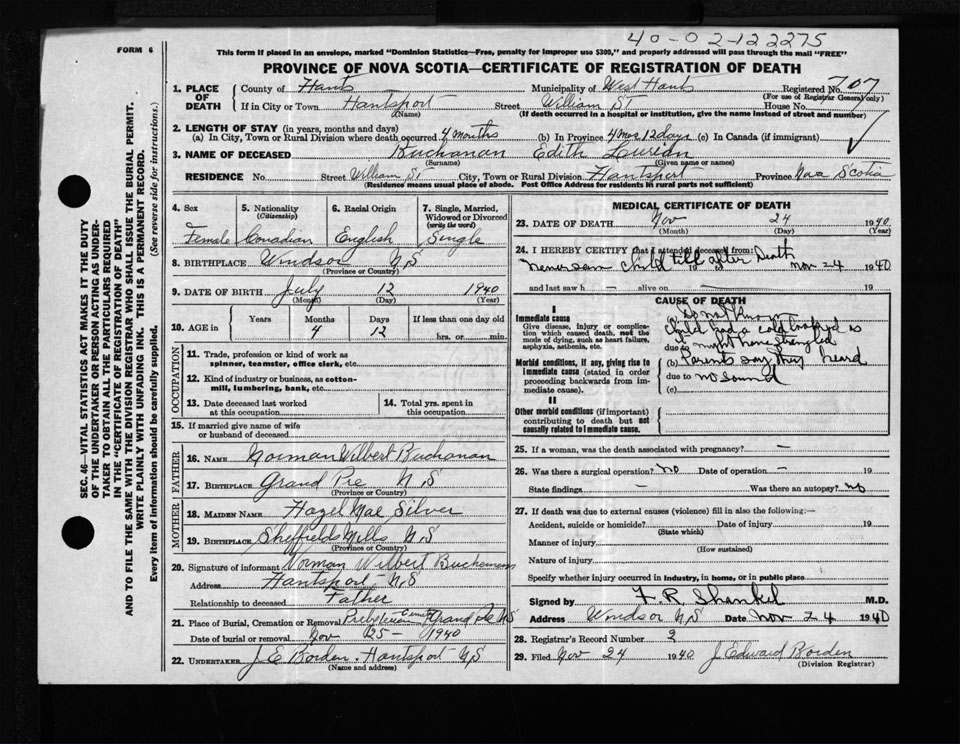 40-02-122275
FORM 6
This form if placed in an envelope, marked "Dominion Statistics—Free, penalty for improper use $300," and properly addressed will pass through the mail "FREE"
PROVINCE OF NOVA SCOTIA—CERTIFICATE OF REGISTRATION OF DEATH
1. PLACE OF DEATH County of Hants Municipality of West Hants Registered No. 707
(For use of Registrar General only)
If in City or Town Hantsport Street William ST House No.
(Name) (If death occurred in a hospital or institution, give the name instead of street and number)
2. LENGTH OF STAY (in years, months and days)
(a) In City, Town or Rural Division where death occurred 4 months (b) In Province 4 mos 12 days (c) In Canada (if immigrant)
3. NAME OF DECEASED Buchanan Edith
(Surname) (Given name or names)
RESIDENCE No. Street William St City, Town or Rural Division Hantsport Province Nova Scotia
(Residence means usual place of abode. Post Office Address for residents in rural parts not sufficient)
4. Sex 5. Nationality (Citizenship) 6. Racial Origin 7. Single, Married, Widowed or Divorced (write the word)
Female Canadian English Single
8. BIRTHPLACE Windsor N S
(Province or Country)
9. DATE OF BIRTH July 12 1940
(Month) (Day) (Year)
10. AGE in Years Months Days If less than one day old
4 12 hrs. or min.
OCCUPATION
11. Trade, profession or kind of work as spinner, teamster, office clerk, etc.
12. Kind of industry or business, as cotton-mill, lumbering, bank, etc.
13. Date deceased last worked at this occupation 14. Total yrs. spent in this occupation
15. If married give name of wife or husband of deceased
FATHER
16. NAME Norman Wilbert Buchanan
17. BIRTHPLACE Grand Pre N S
(Province or Country)
MOTHER
18. MAIDEN NAME Hazel Mae Silver
19. BIRTHPLACE Sheffields Mills N.S
(Province or Country)
20. Signature of informant Norman Wilbert Buchanan
Address Hantsport N.S
Relationship to deceased Father
21. Place of Burial, Cremation or Removal Presbyterian Grand Pre NS
Date of burial or removal Nov 25- 1940
22. UNDERTAKER J E Borden. Hantsport NS
(Name and address)
MEDICAL CERTIFICATE OF DEATH
23. DATE OF DEATH Nov 24 1940
(Month) (Day) (Year)
24. I HEREBY CERTIFY that I attended deceased from:
Never saw child till after Death Nov 24 1940
and last saw h alive on 19
CAUSE OF DEATH
I
Immediate cause
Give disease, injury or complication which caused death, not the mode of dying, such as heart failure, asphyxia, asthenia, etc.
(a) Do not Know
Child had a cold looked as
due to it might have strangled
Morbid conditions, if any, giving rise to immediate cause (stated in order proceeding backwards from immediate cause).
(b) Parents say they heard
due to no sound
(c)
II
Other morbid conditions (if important) contributing to death but not causally related to immediate cause.
25. If a woman, was the death associated with pregnancy? —
26. Was there a surgical operation? No Date of operation — 19
State findings — Was there an autopsy? No
27. If death was due to external causes (violence) fill in also the following:—
Accident, suicide or homicide? Date of injury 19
(State which)
Manner of injury
(How sustained)
Nature of injury
Specify whether injury occurred in industry, in home, or in public place
Signed by F. R Shankel M.D.
Address Windsor N.S Date Nov 24 1940
28. Registrar's Record Number 2
29. Filed Nov 24 1940 J Edward Borden
(Division Registrar)
SEC. 46—VITAL STATISTICS ACT MAKES IT THE DUTY
OF THE UNDERTAKER OR PERSON ACTING AS UNDERTAKER TO OBTAIN ALL THE PARTICULARS REQUIRED
IN THE "CERTIFICATE OF REGISTRATION OF DEATH"
AND TO FILE THE SAME WITH THE DIVISION REGISTRAR WHO SHALL ISSUE THE BURIAL PERMIT.
WRITE PLAINLY WITH UNFADING INK. THIS IS A PERMANENT RECORD.
Every item of information should be carefully supplied. (See reverse side for instructions.)